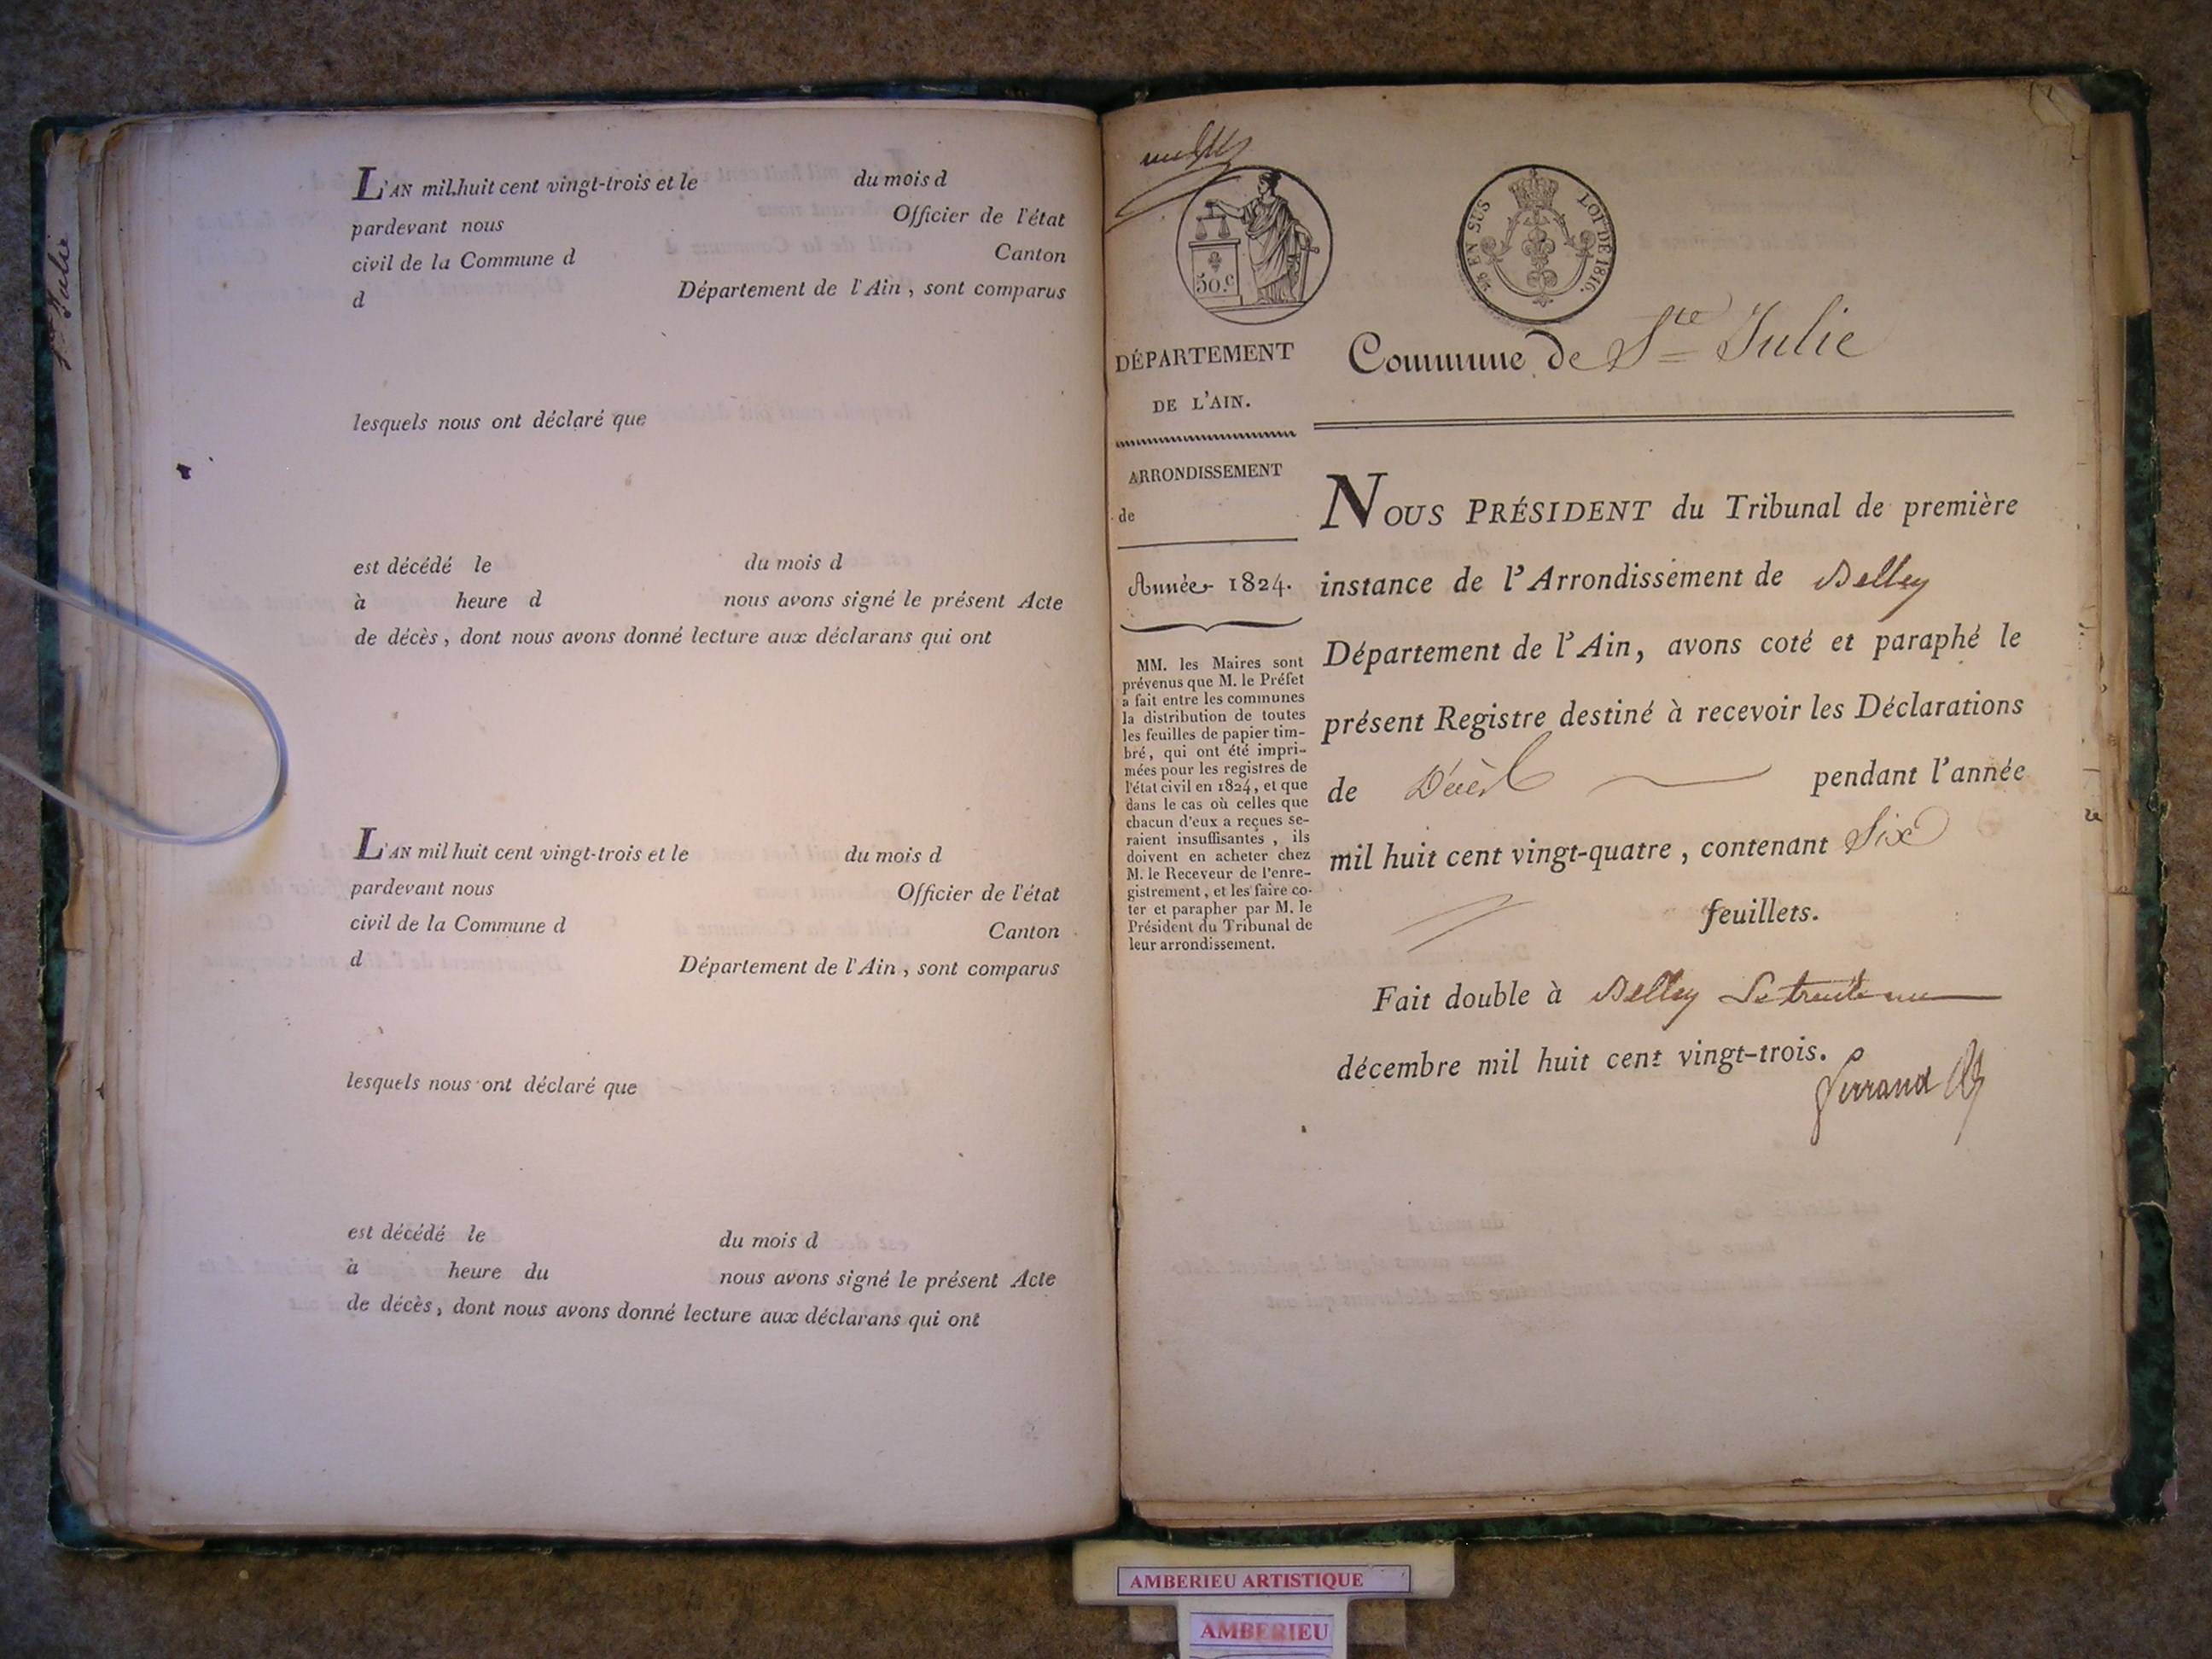 Ste Julie
L'AN mil huit cent vingt-trois et le du mois d
pardevant nous Officier de l'état
civil de la Commune d Canton
d Département de l'Ain, sont comparus
lesquels nous ont déclaré que
est décédé le du mois d
à heure d nous avons signé le présent Acte
de décès, dont nous avons donné lecture aux déclarans qui ont
L'AN mil huit cent vingt-trois et le du mois d
pardevant nous Officier de l'état
civil de la Commune d Canton
d Département de l'Ain, sont comparus
lesquels nous ont déclaré que
est décédé le du mois d
à heure du nous avons signé le présent Acte
de décès, dont nous avons donné lecture aux déclarans qui ont
50.c
EN SUS LOI DE 1816.
DÉPARTEMENT
DE L'AIN.
ARRONDISSEMENT
de
Année 1824.
MM. les Maires sont
prévenus que M. le Préfet
a fait entre les communes
la distribution de toutes
les feuilles de papier tim-
bré, qui ont été impri-
mées pour les registres de
l'état civil en 1824, et que
dans le cas où celles que
chacun d'eux a reçues se-
raient insuffisantes, ils
doivent en acheter chez
M. le Receveur de l'enre-
gistrement, et les faire co-
ter et parapher par M. le
Président du Tribunal de
leur arrondissement.
Commune de Ste Julie
NOUS PRÉSIDENT du Tribunal de première
instance de l'Arrondissement de Belley
Département de l'Ain, avons coté et paraphé le
présent Registre destiné à recevoir les Déclarations
de Décès pendant l'année
mil huit cent vingt-quatre, contenant Six
feuillets.
Fait double à Belley Le trente un
décembre mil huit cent vingt-trois.
Ferrand
AMBERIEU ARTISTIQUE
AMBERIEU